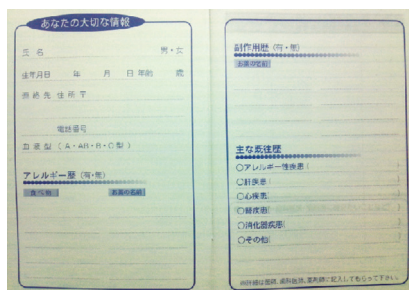 あなたの大切な情報
氏名 男・女
生年月日 年 月 日 年齢 歳
連絡先 住所 〒
電話番号
血液型 (A・AB・B・O型)
アレルギー歴 (有・無)
食べ物 お薬の名前
副作用歴 (有・無)
お薬の名前
主な既往歴
○アレルギー性疾患(
○肝疾患(
○心疾患(
○腎疾患(
○消化器疾患(
○その他(
医師、歯科医師、薬剤師に記入してもらって下さい。